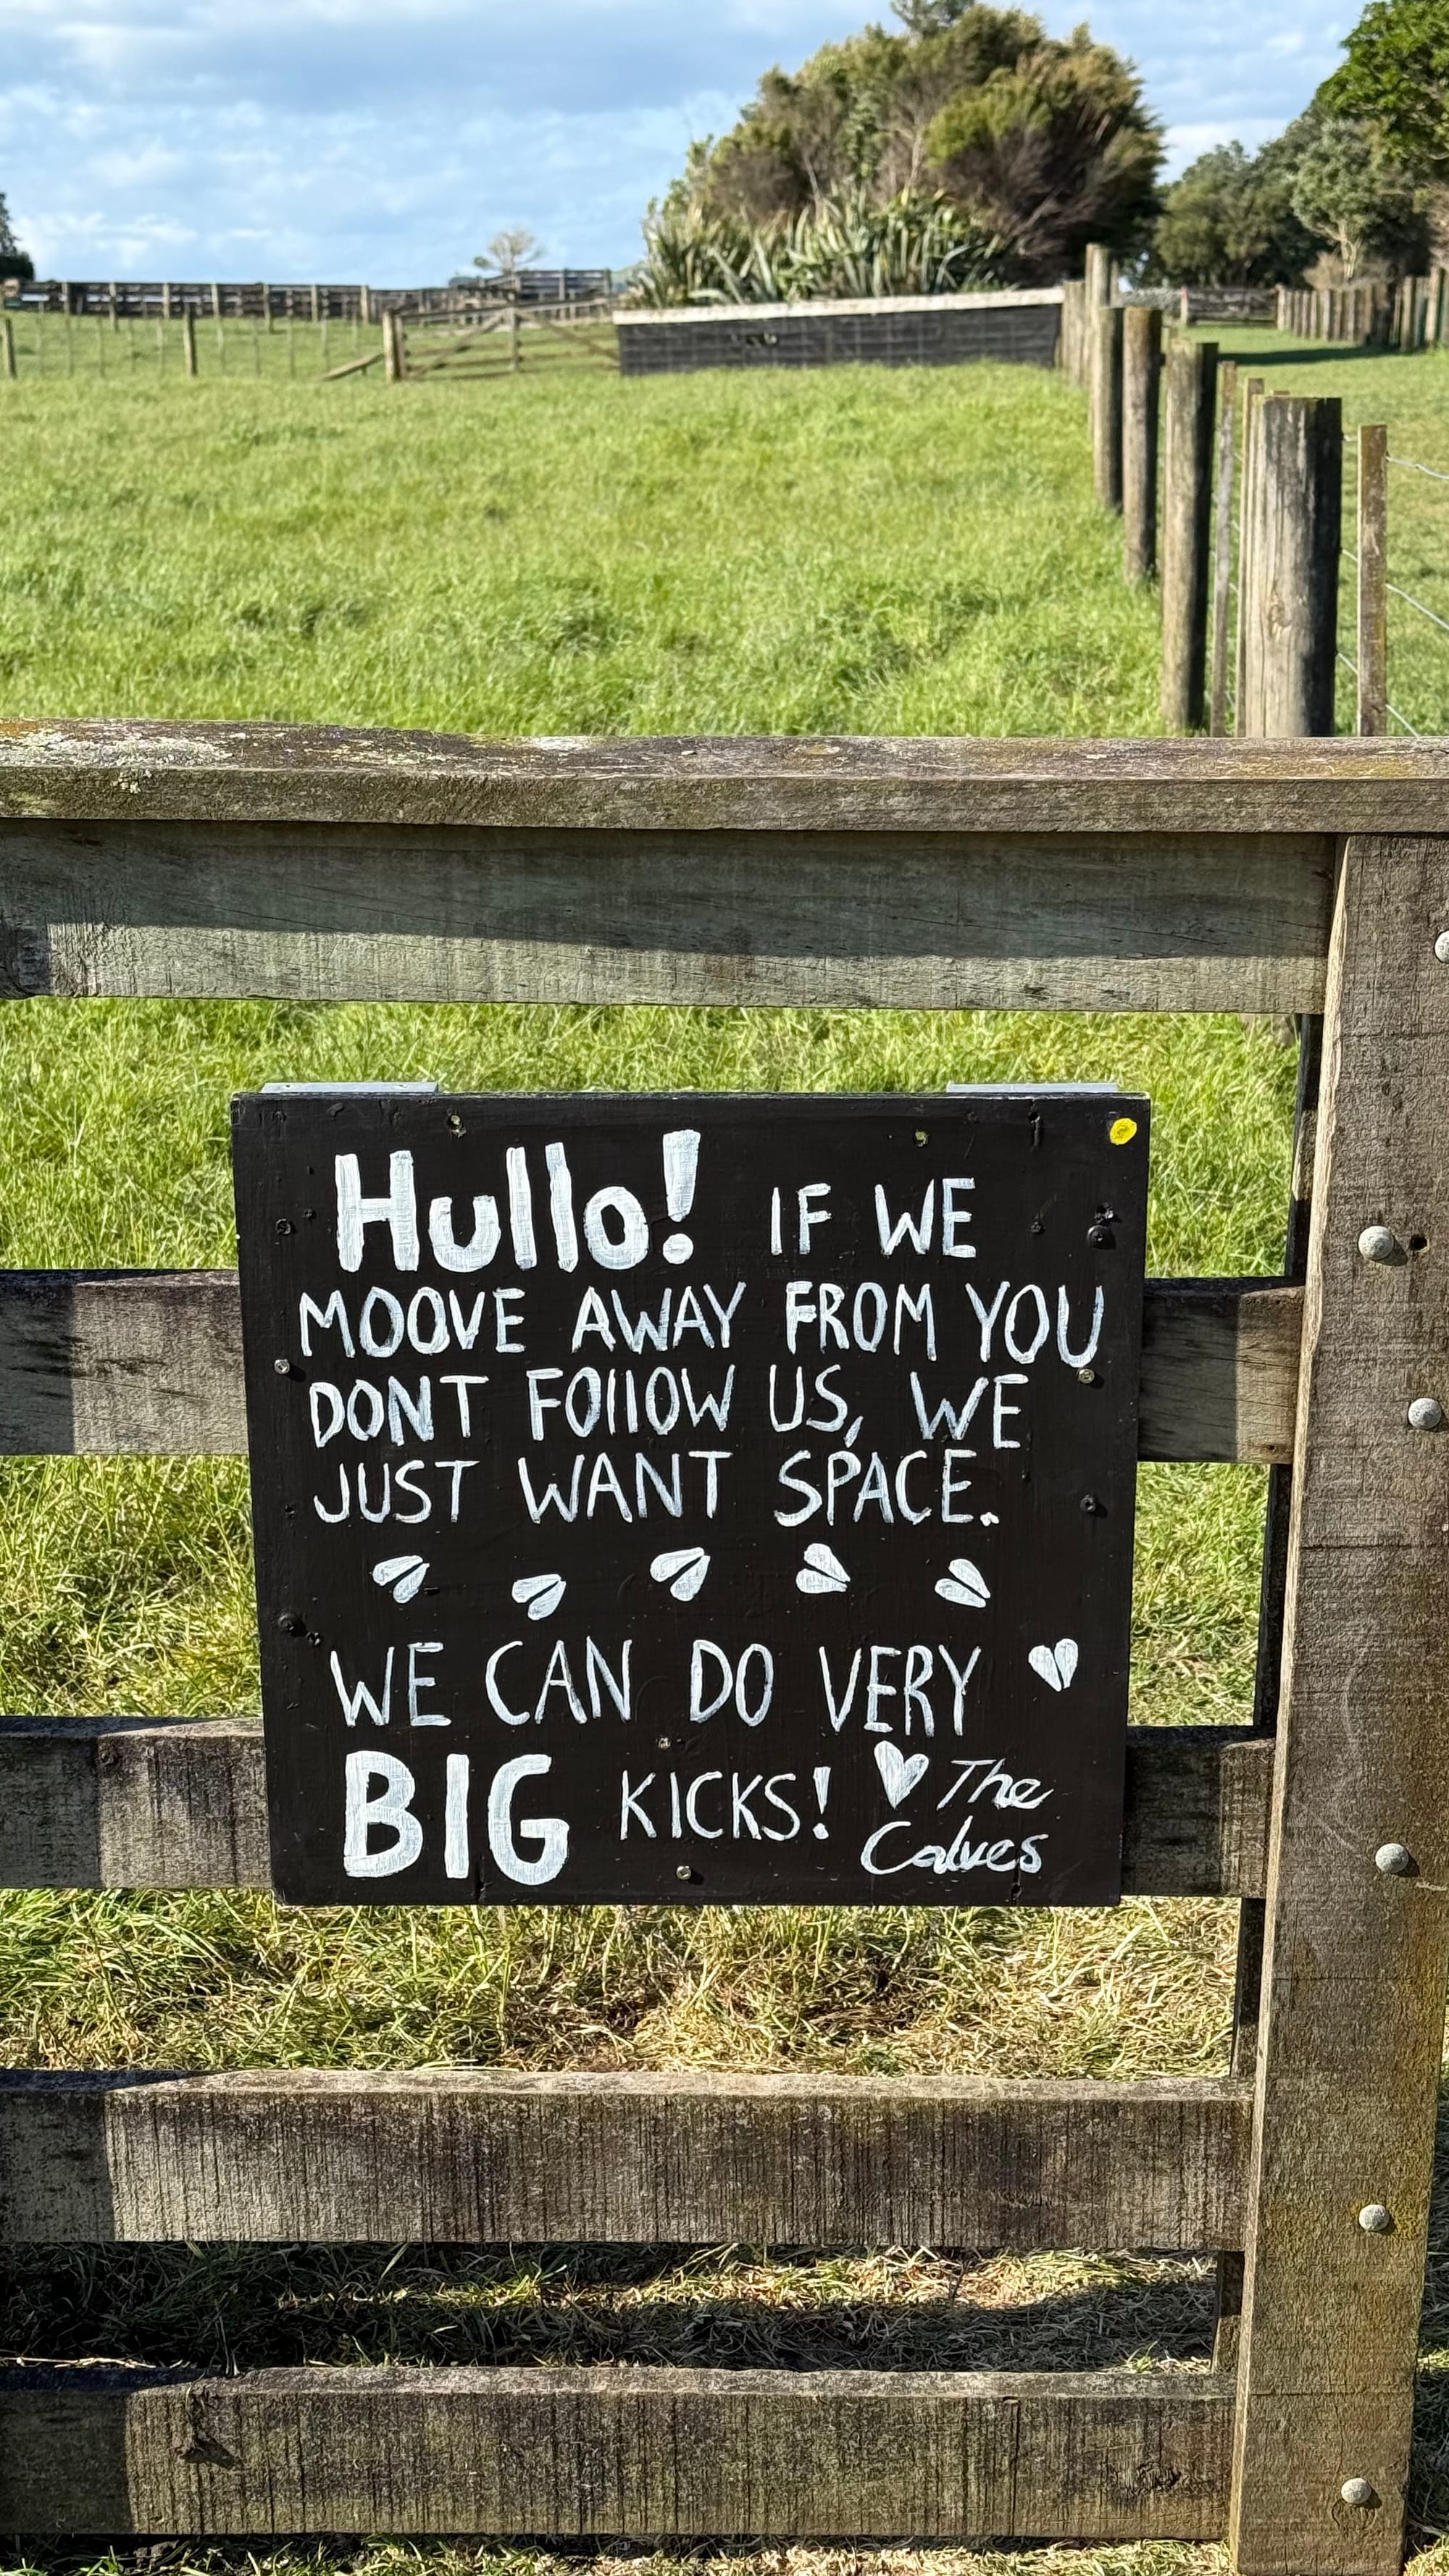 Hullo! IF WE
MOOVE AWAY FROM YOU
DONT FOllOW US, WE
JUST WANT SPACE.
WE CAN DO VERY
BIG KICKS! The
Calves